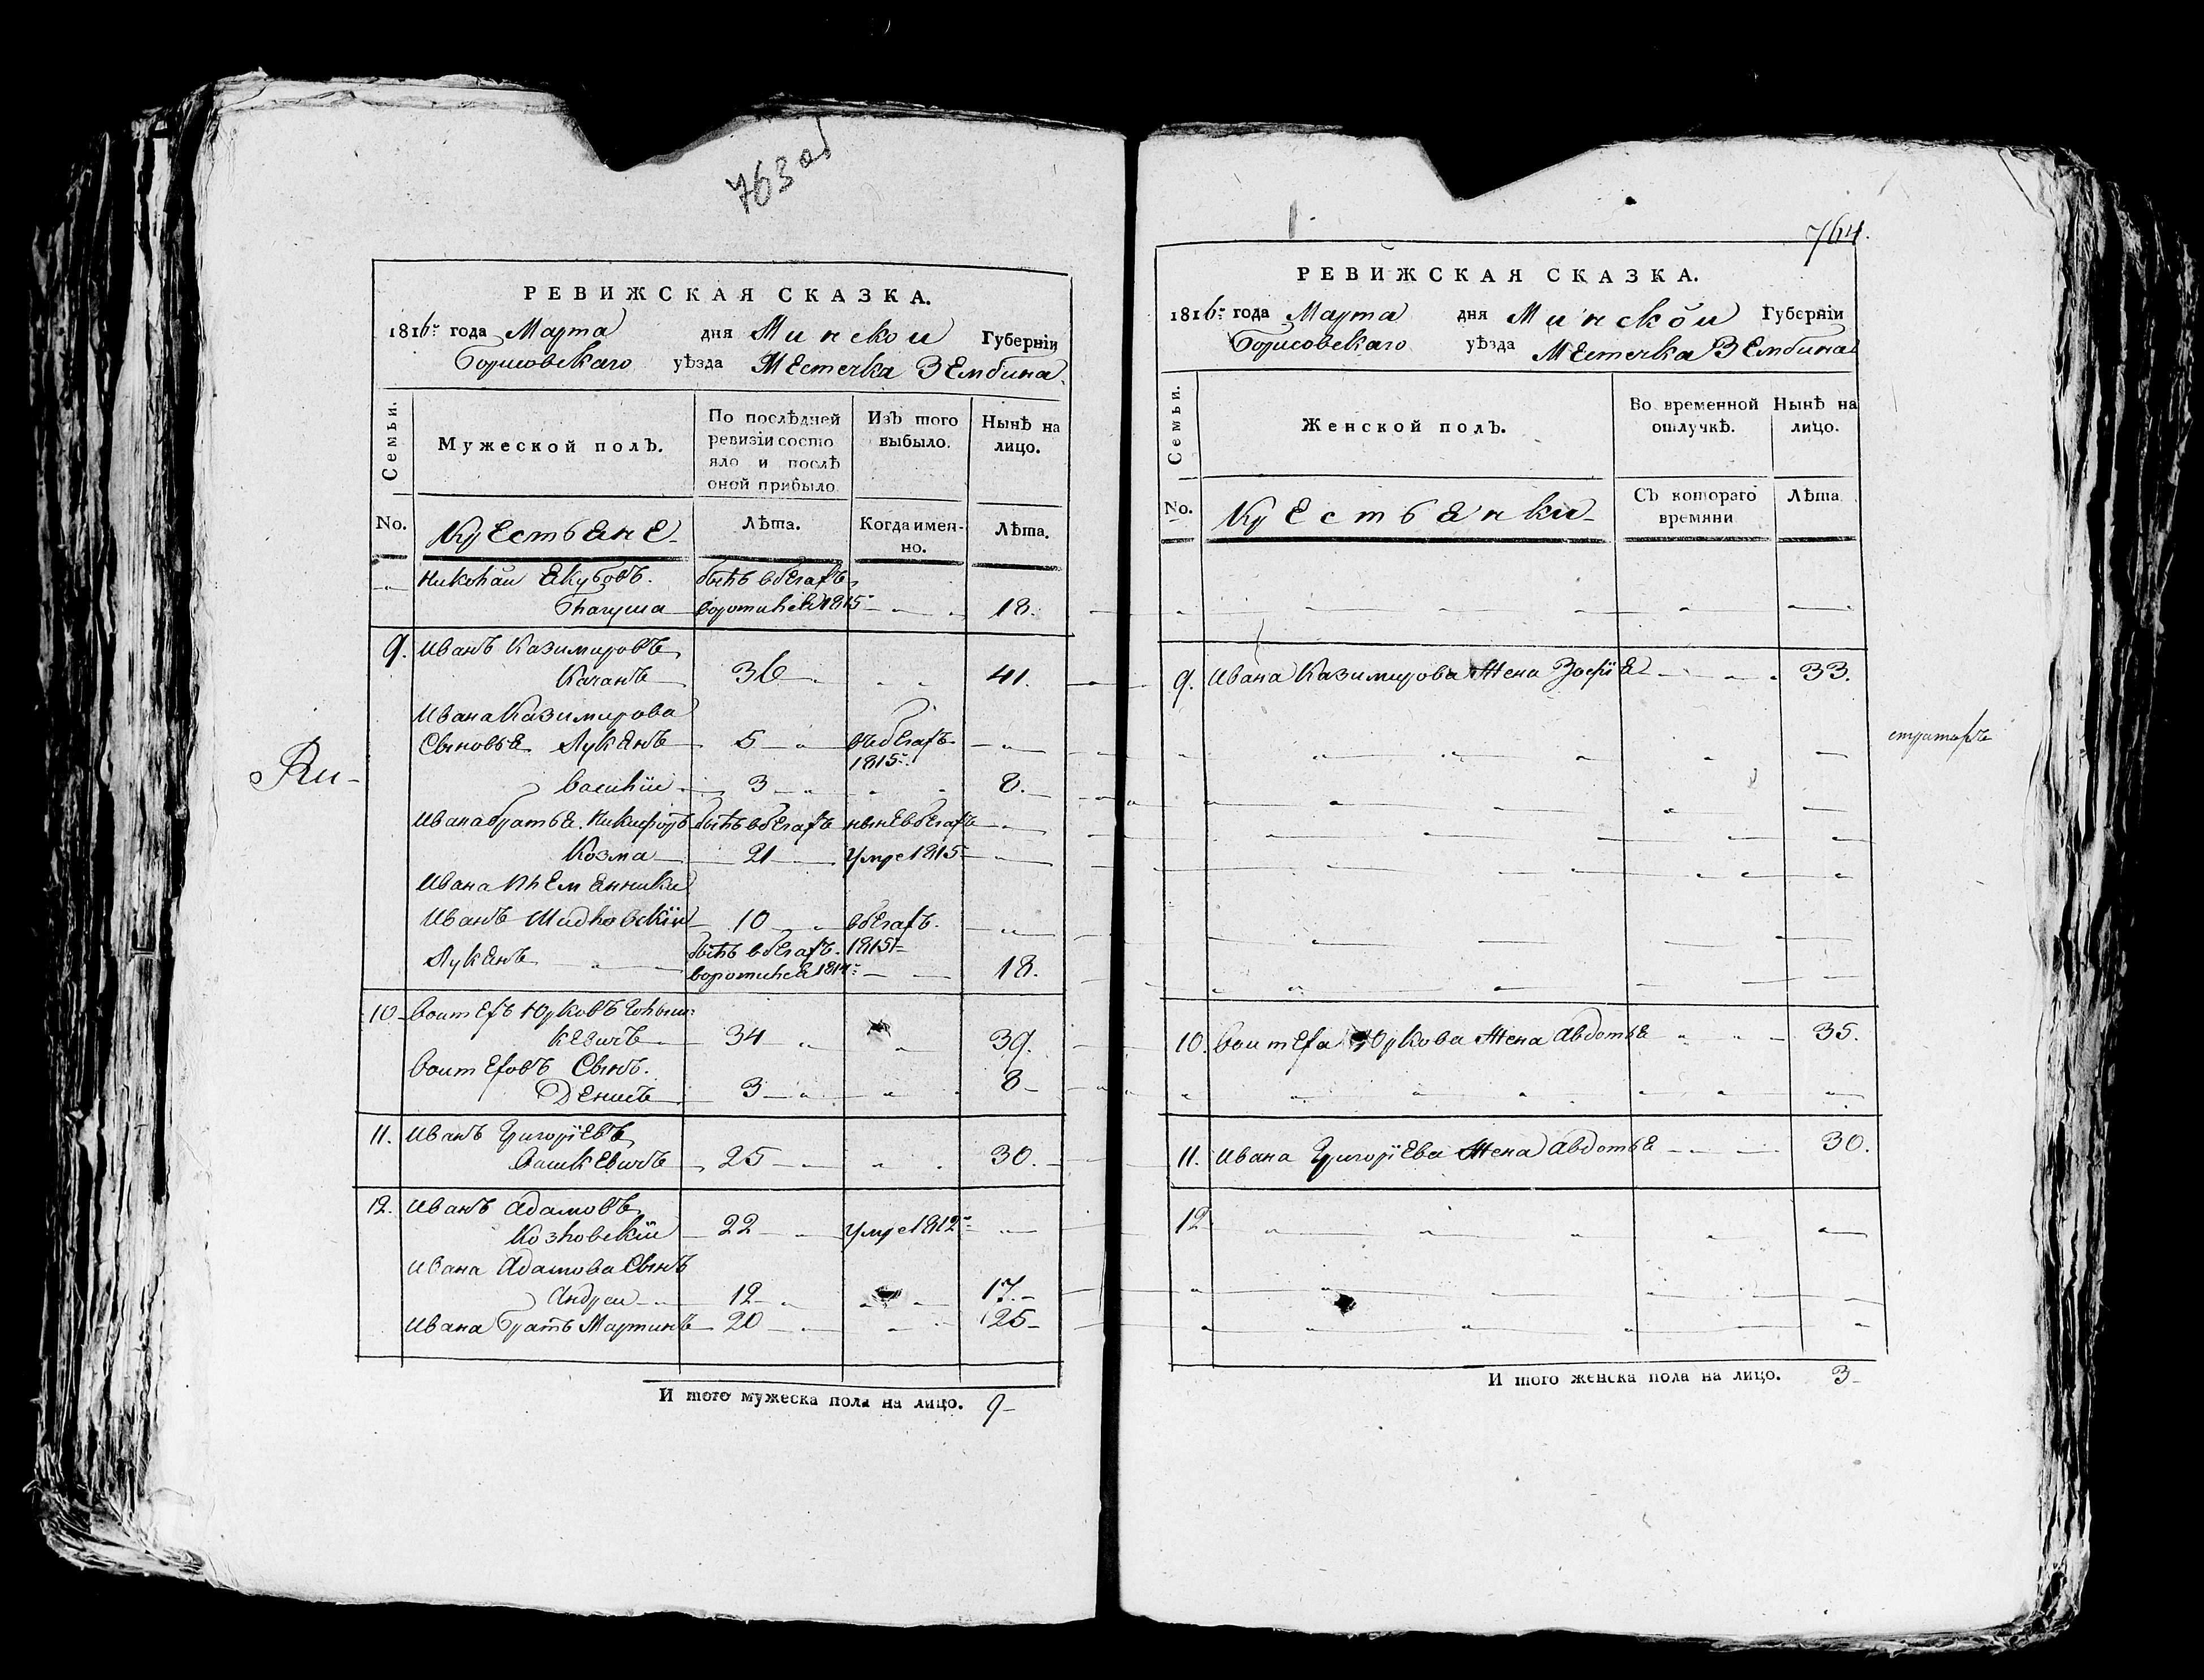 763 об
РЕВИЖСКАЯ СКАЗКА.
1816го года Марта дня Минской Губернїи
Борисовскаго уѣзда Местечка Зембина
Семьи.
Мужеской полъ.
По послѣдней ревизїи состояло и послѣ оной прибыло
Изъ того выбыло.
Нынѣ на лицо.
No.
Крестьяне
Лѣта.
Когда имен-но.
Лѣта.
Николай Якубовъ. былъ вбегахъ
воротился 1815 18.
9. Иванъ Казимировъ
Качанъ 36 41.
Ивана Казимирова
Сыновья Лукянъ 5 въбегахъ
1815
Василїй 3 8.
Ивана братья. Никифоръ былъ вбегахъ ныне вбегахъ
Козма 21 умре 1815
Ивана племянники
Иванъ 10 вбегахъ
Лукянъ былъ вбегахъ 1815
воротился 1814 18.
10 Воитехъ Юрковъ
кевичъ 34 39.
Воитеховъ Сынъ.
Денисъ 3 8
11. Иванъ Григорїевъ
Вашкевичъ 25 30.
12. Иванъ Адамовъ
Козловскїй 22 умре 1812
Ивана Адамова Сынъ
Андреи 12 17.
Ивана братъ Мартинъ 20 25
И того мужеска пола на лицо. 9
764.
РЕВИЖСКАЯ СКАЗКА.
1816го года Марта дня Минской Губернїи
Борисовскаго уѣзда Местечка Зембина
Семьи.
Женской полъ.
Во временной отлучкѣ.
Нынѣ на лицо.
No.
Крестьянки
Съ котораго времяни
Лѣта
9. Ивана Казимирова Жена Зофїя 33.
10. Воитеха Юркова Жена Авдотья 35.
11. Ивана Григорїева Жена Авдотья 30.
12
И того женска пола на лицо. 3